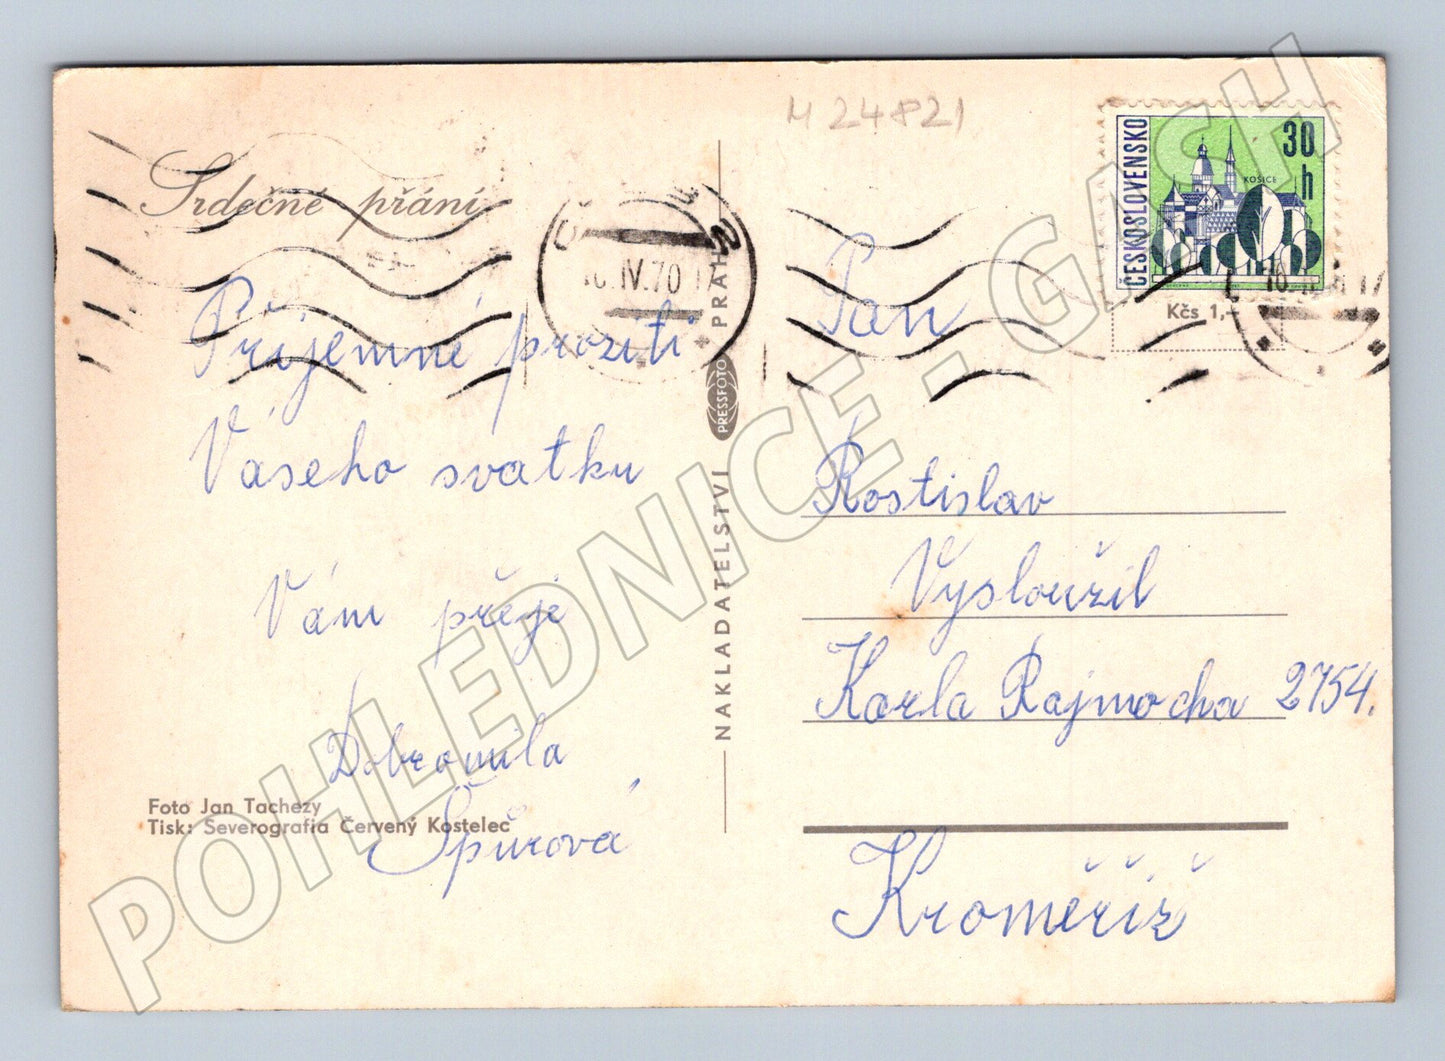 M 24821
Srdečné přání
Příjemné prožití
Vašeho svatku
Vám přeje
Dobromila
Špůrová
Foto Jan Tachezy
Tisk: Severografia Červený Kostelec
NAKLADATELSTVI PRESSFOTO PRAHA
IV.70 17
ČESKOSLOVENSKO
30 h
KOŠICE
Kčs 1,–
Pan
Rostislav
Vysloužil
Karla Rajmocha 2754.
Kroměříž
POHLEDNICE - GASH